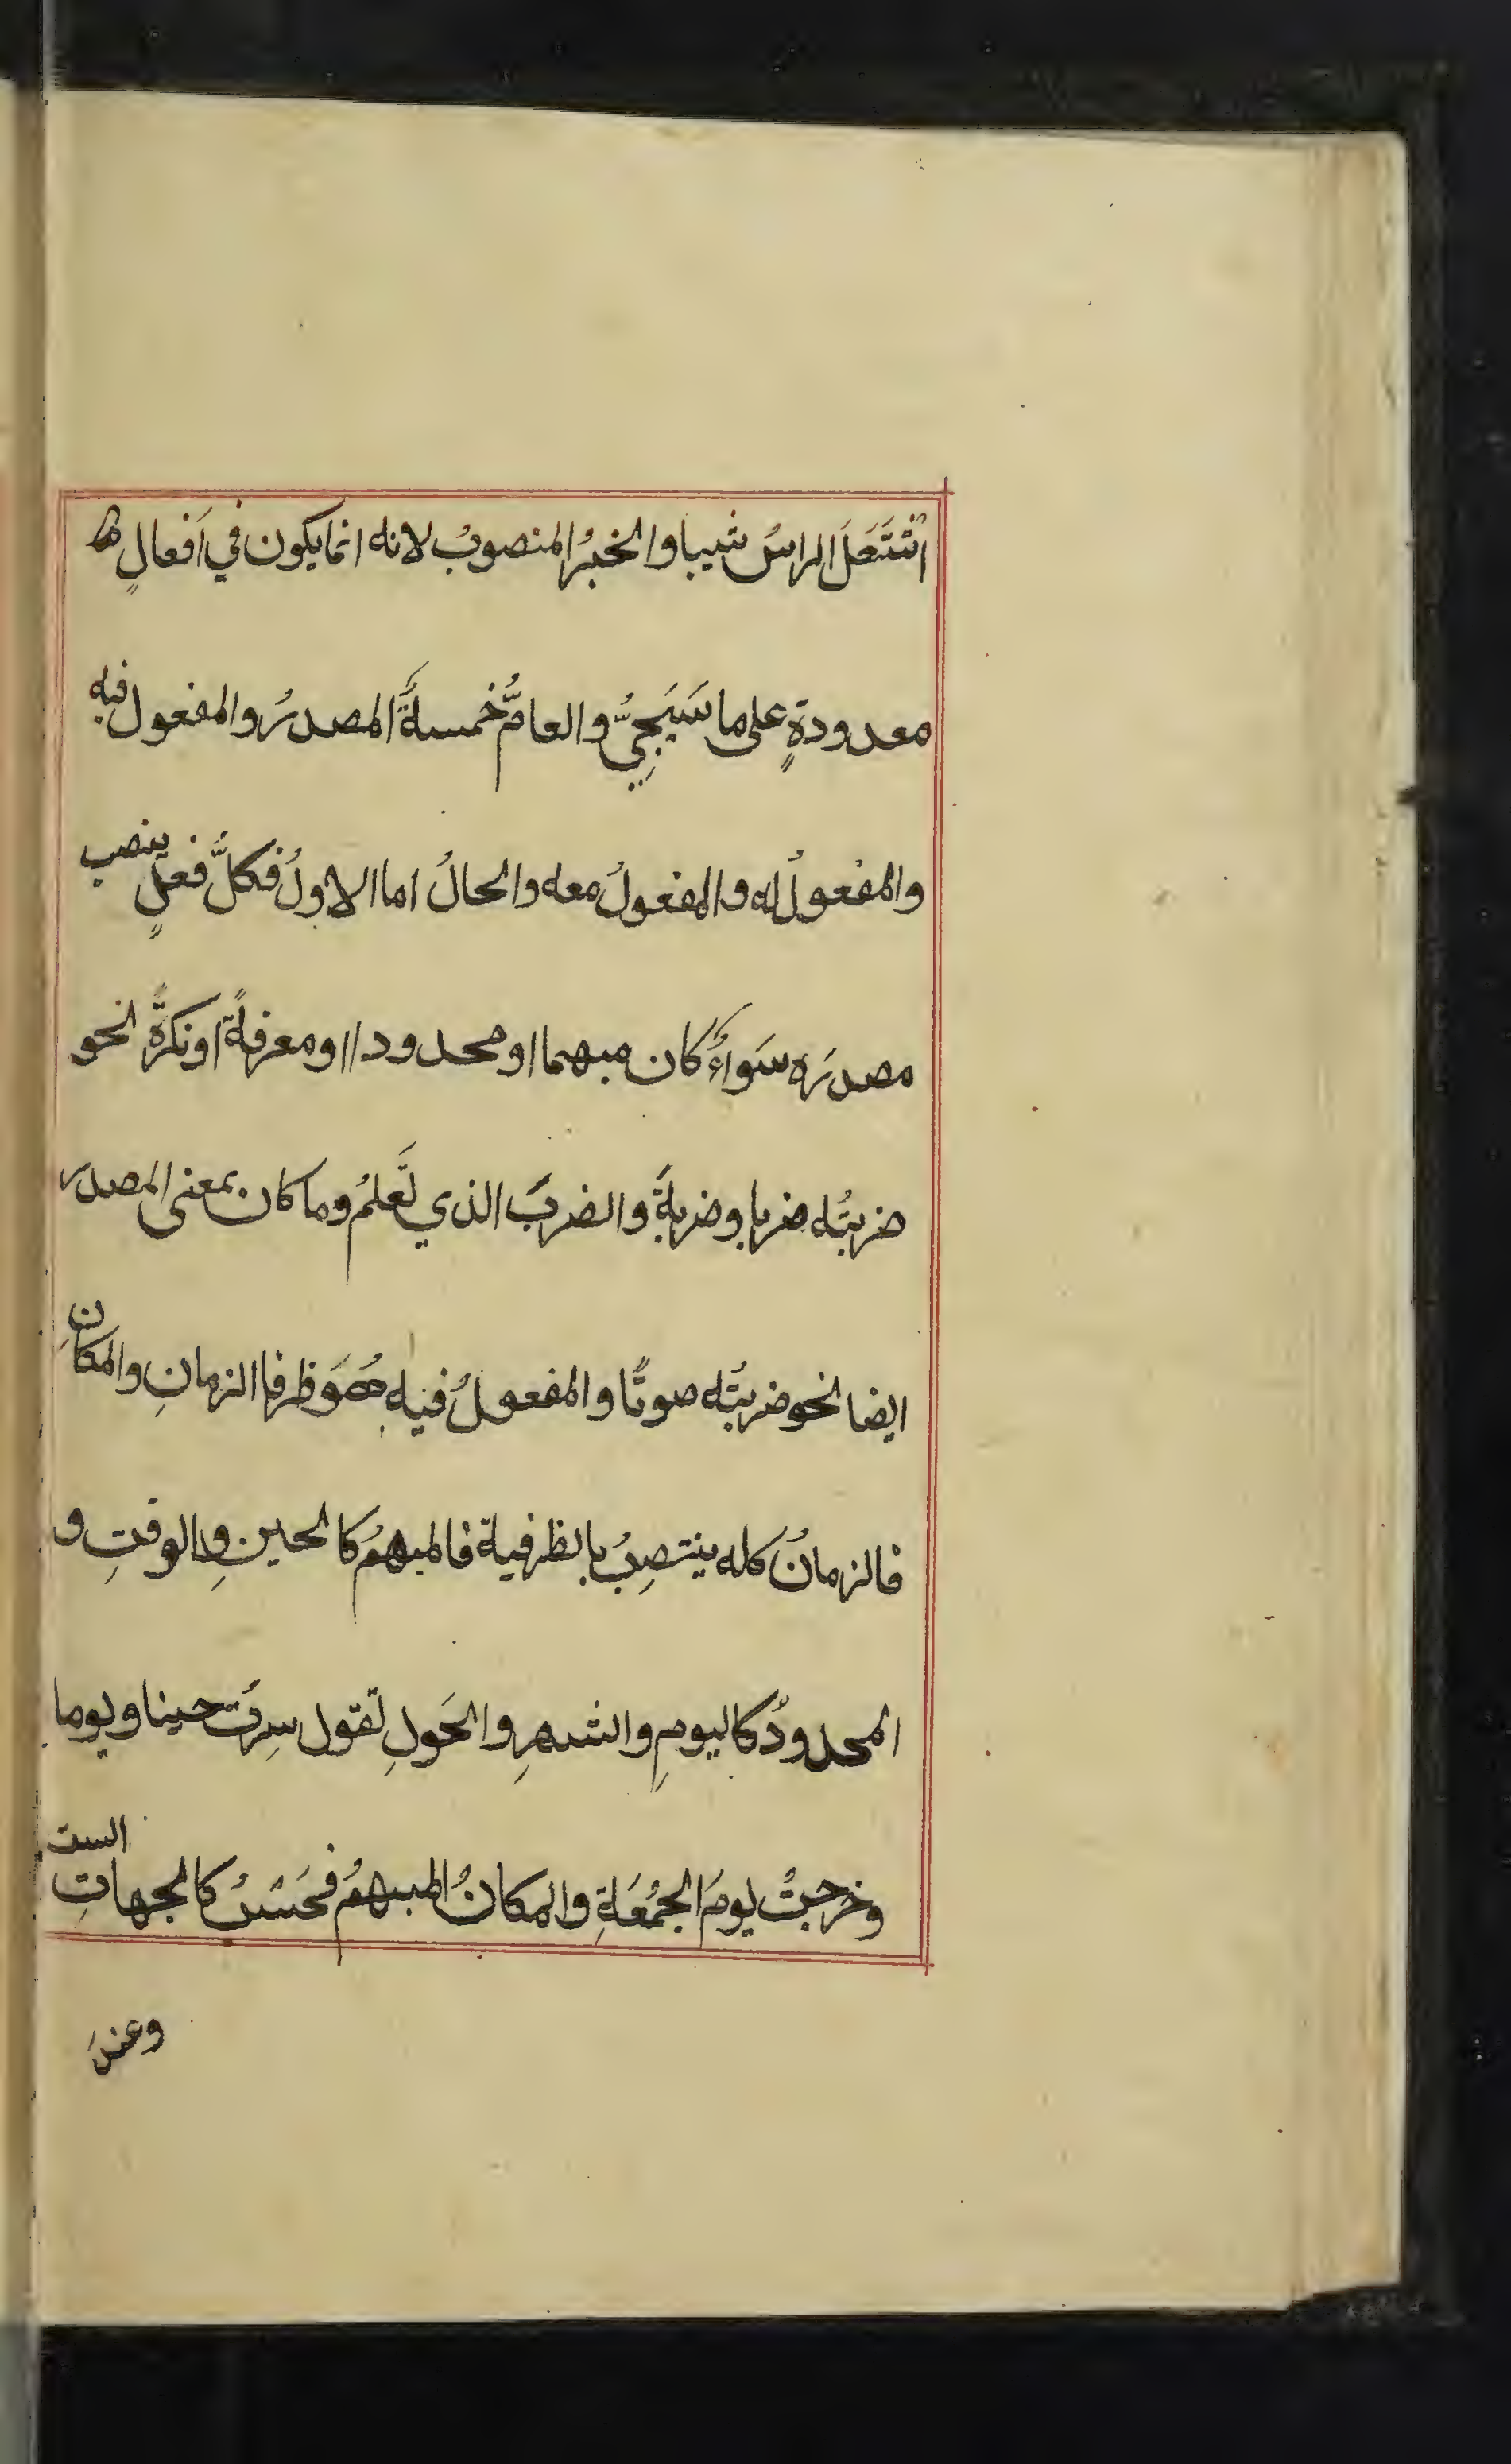 اشتَعَلَ الراسُ شيبا والخبرُ المنصوبُ لانه انما يكون في اَفعالٍ
معدودةٍ على ما سَيَجِيُّ والعامُّ خمسةٌ المصدرُ والمفعول فيه
والمفعولُ له والمفعولُ معه والحالُ اما الاولُ فكلُّ فعلٍ ينصب
مصدرَه سَواءٌ كان مبهما او محدودا او معرفةً او نكرةً نحو
ضربتُه ضربا وضربةً والضربَ الذي تَعلمُ وما كان بمعنى المصدر
ايضا نحو ضربتُه سوطًا والمفعولُ فيه هُوَ ظرفا الزمانِ والمكانِ
فالزمانُ كله ينتصِبُ بالظرفية فالمبهمُ كالحينِ والوقتِ و
المحدودُ كاليومِ والشهرِ والحَولِ تقول سِرتُ حينا ويوما
وخرجتُ يومَ الجُمُعَةِ والمكانُ المبهمُ فحَسْبُ كالجهاتِ الست
وعندَ